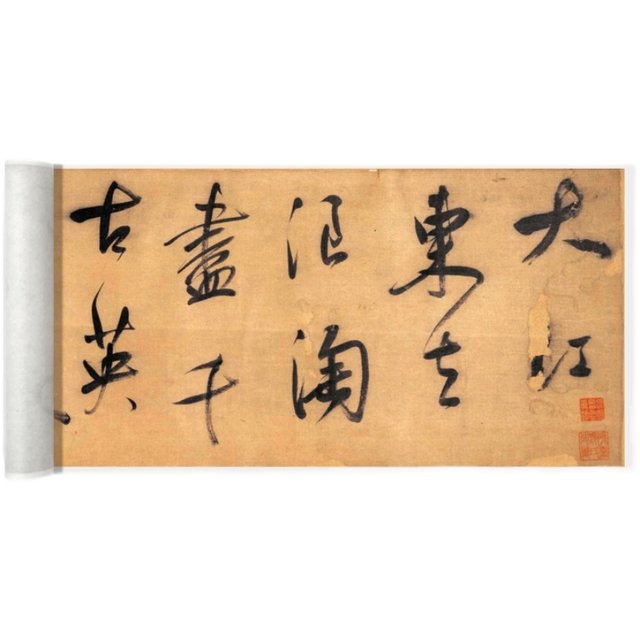 大江
東去
浪淘
盡千
古英